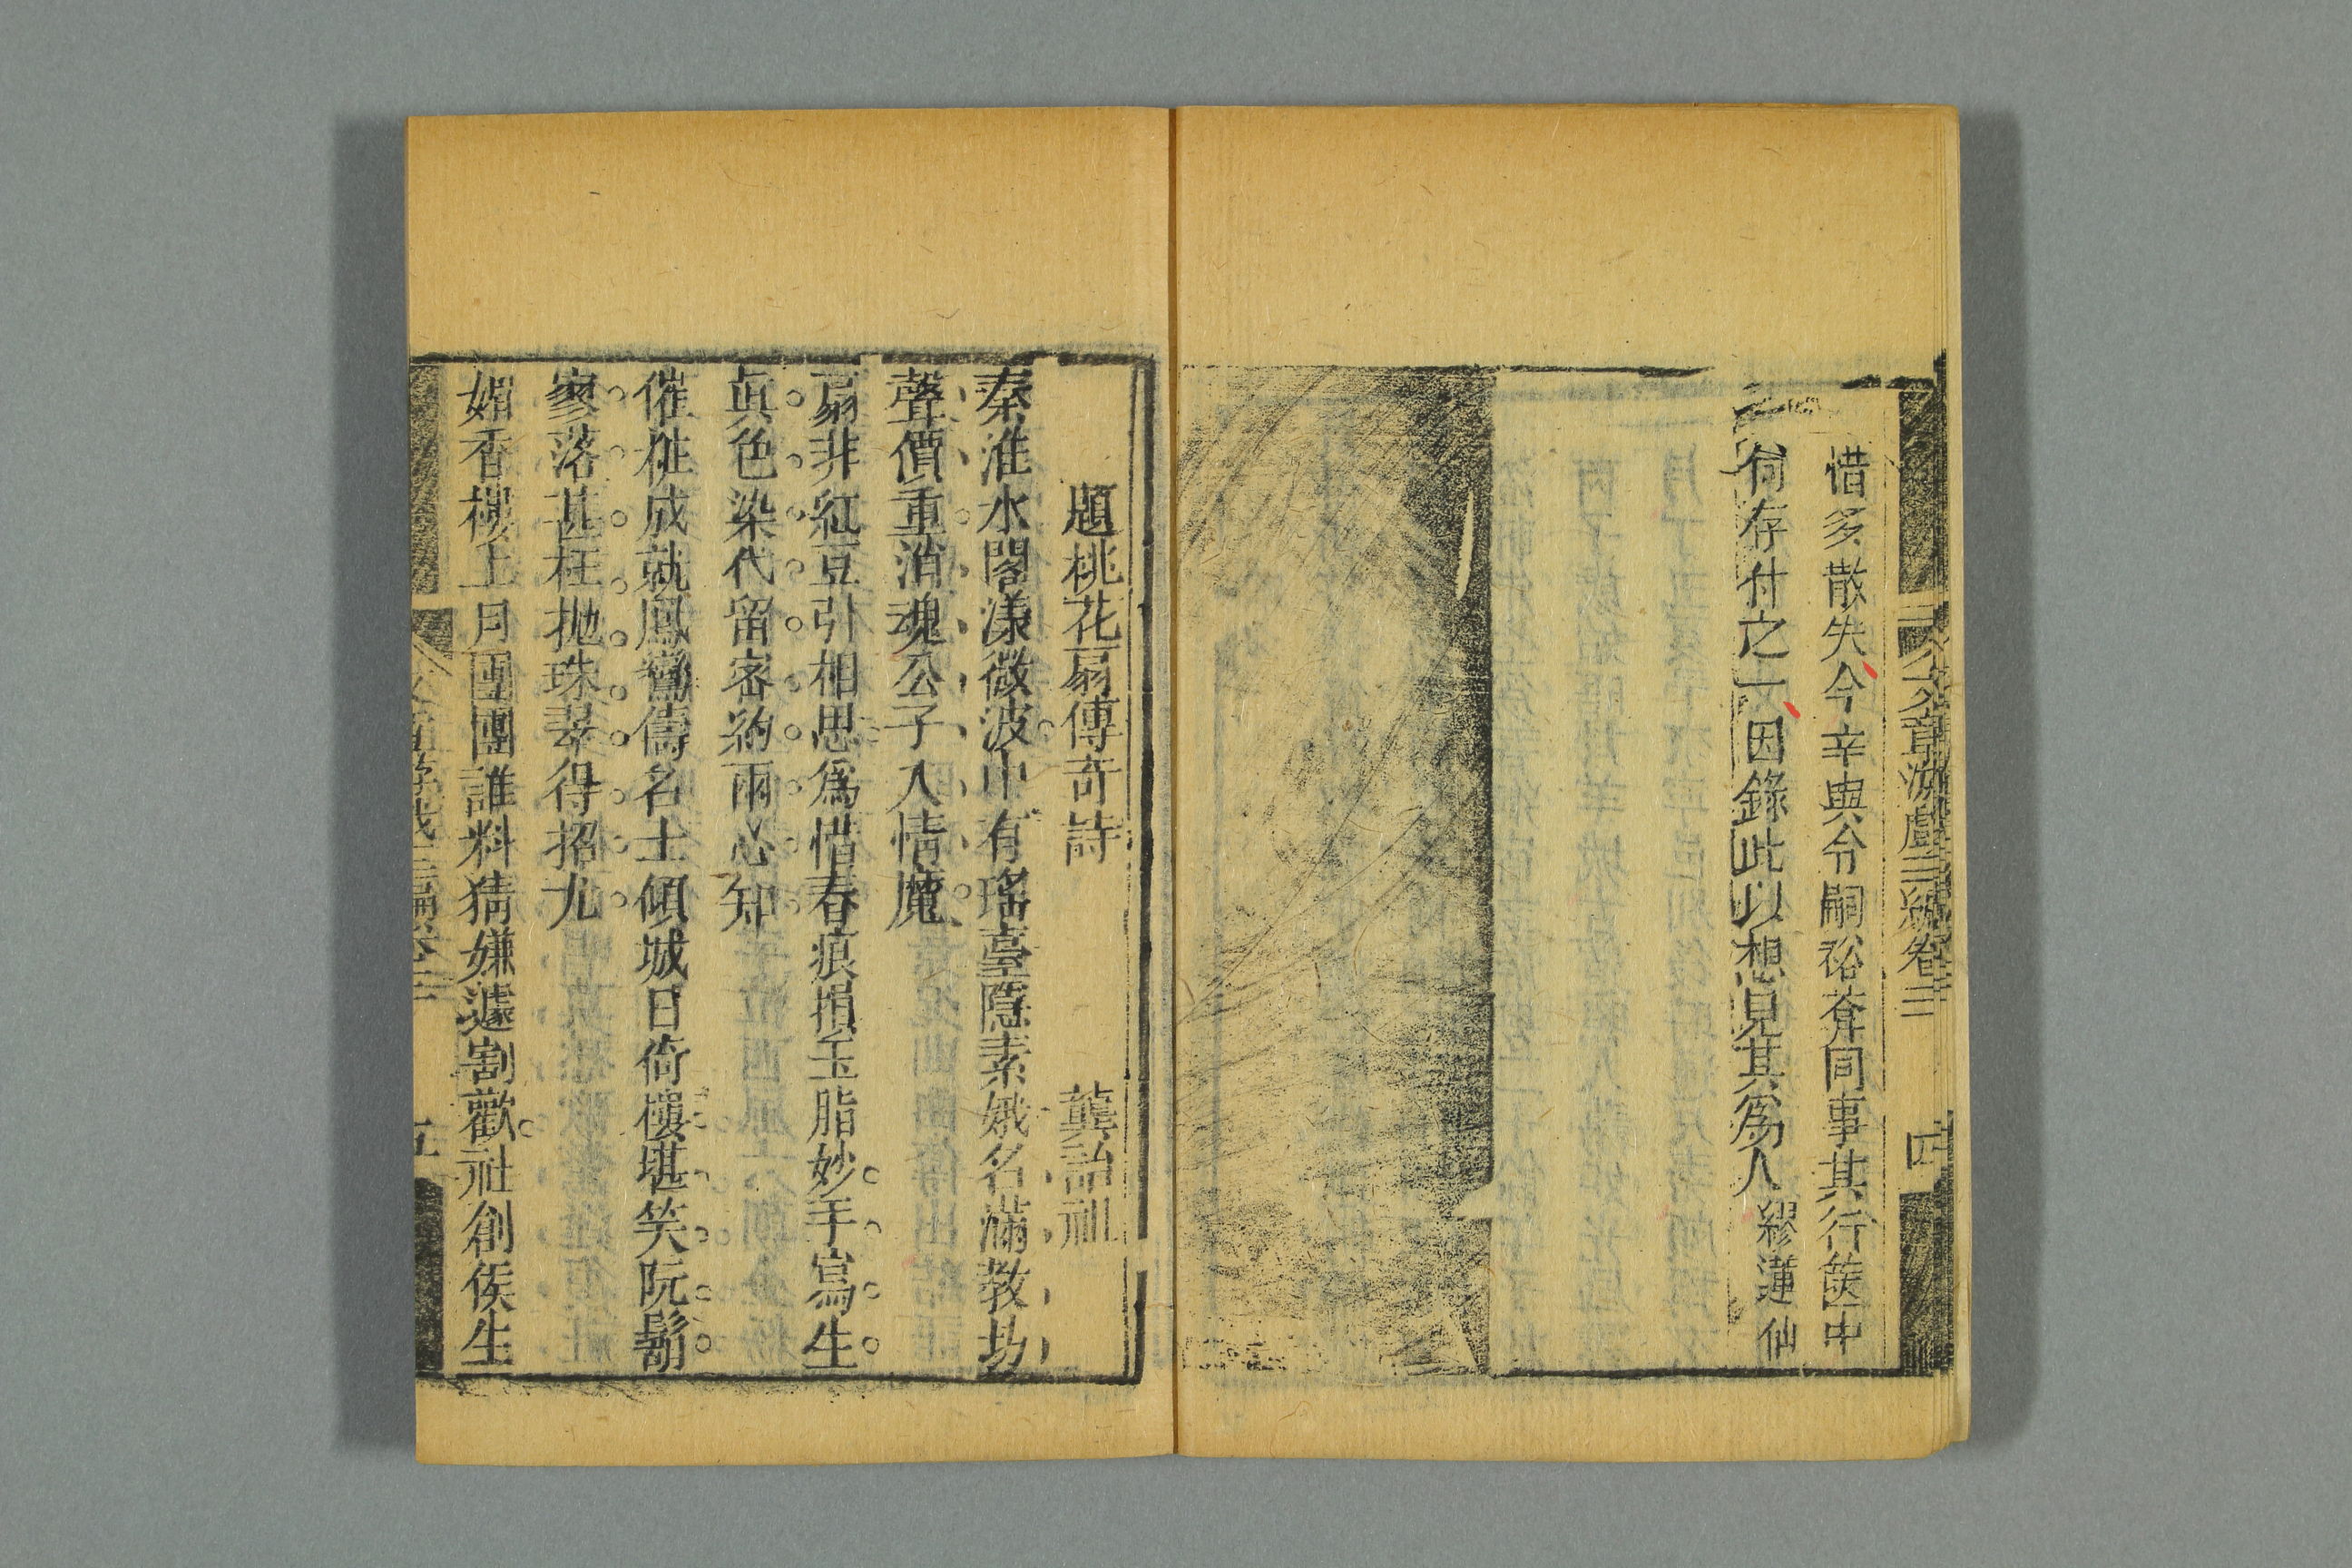 文章游戲三編卷三 四
惜多散失今幸與令嗣裕菴同事其行篋中
尙存付之一因錄此以想見其爲人 繆蓮仙
題桃花扇傳奇詩 龔詒祖
秦淮水閣漾微波中有瑤臺隱素娥名滿教坊
聲價重消魂公子入情魔
扇非紅豆引相思爲惜春痕損玉脂妙手寫生
眞色染代留密約兩心知
催粧成就鳳鸞儔名士傾城日倚樓堪笑阮鬍
寥落甚枉抛珠翠得招尤
媚香樓上月團團誰料猜嫌遽割歡社創侯生
五